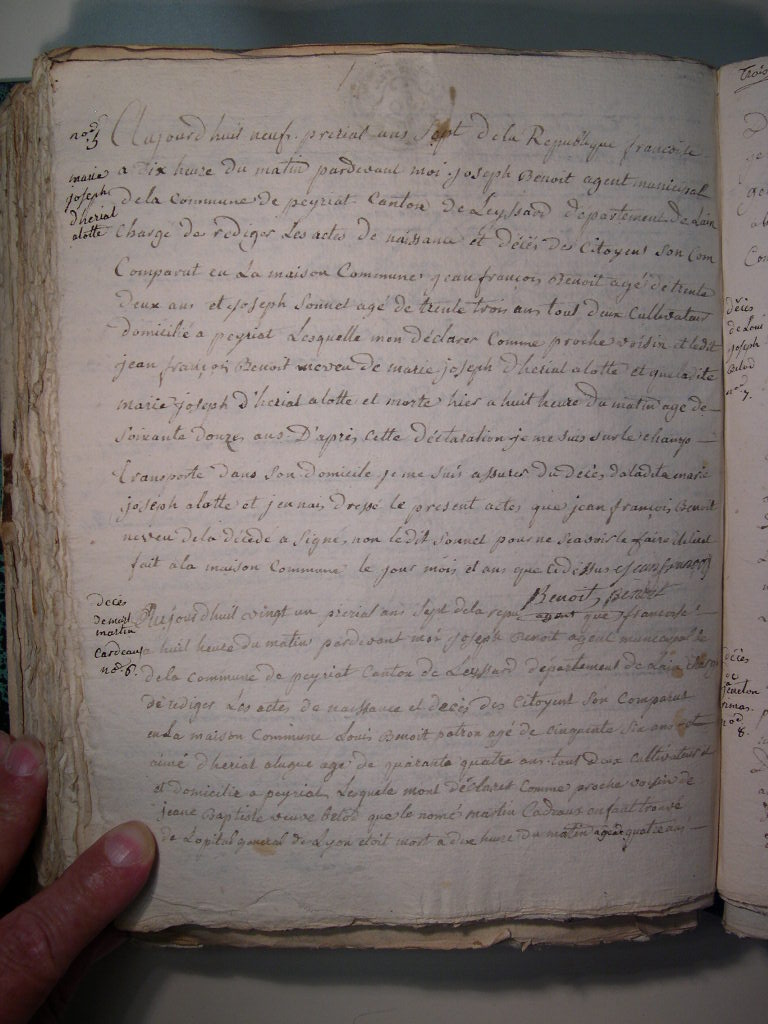 no 5
marie
joseph
dherial
alotte
Aujourdhuit neuf prerial ans Sept de la Republique francoise
a dix heure du matin pardevant moi joseph Benoit agent municipal
de la Commune de peyriat Canton de Leyssard departement de Lain
Chargé de rediger Les actes de naissance et décés des Citoyens Son Com
Comparut en La maison Commune jean françois Benoit agé de trente
deux ans et joseph Sonnet agé de trente trois ans tout deux Cultivateur
domicilié a peyriat Lesquelle mon déclarer Comme proche voisin et ledit
jean françois Benoit neveu de marie joseph dherial alotte et que ladite
marie joseph d'herial alotte et morte hier a huit heure du matin age de
Soixante douze ans D'après Cette déclaration je me suis sur le champ
transporte dans Son domicile je me suis assurer du decès de ladita marie
joseph alotte et jen nais dressé le present actes que jean françois Benoit
neveu de la décéde a Signé, non ledit Sonnet pour ne scavoir le faire
fait a la maison Commune le jour mois et ans que cidessus jean françois
Benoit, Benoit
agent
decès
de
martin
Cardeaux
no 6.
Aujourdhuil vingt un prerial ans Sept de la repu que francoise
a huit heure du matin pardevant moi joseph Benoit agent municipal de
de la commune de peyriat Canton de Leyssard departement de Lain chargé
de rediger Les actes de naissance et decés des Citoyent Son Comparut
en La maison Commune Louis Benoit patron agé de cinquente Six ans et
aimé dheriat aluque age de quarante quatre ans tout deux cultivateur
et domicilié a peyriat Lesquele mont déclaret Comme proche voisin de
jeane Baptiste veuve belod que le nomé martin Cadeaux enfant trouvé
de Lopital general de Lyon etoit mort a dix heure du matin age de quatre ans
décès
de Loui
joseph
Belod
no 7.
décès
no
8.